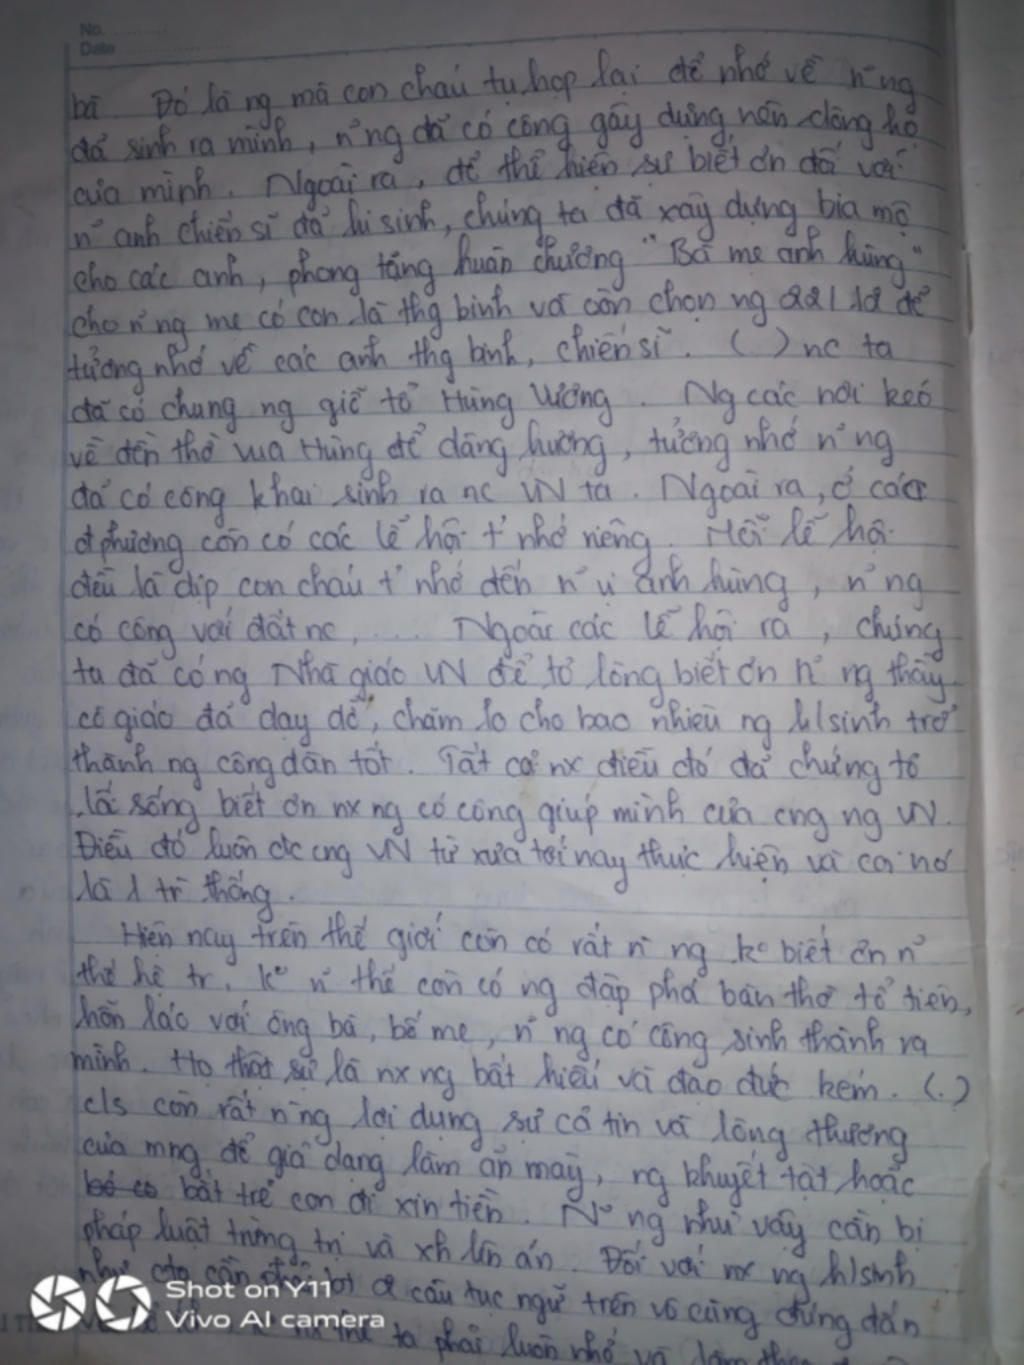 No. ............
Date ....................
bà. Đó là ng mà con cháu tụ họp lại để nhớ về n~ ng
đã sinh ra mình, n~ ng đã có công gây dựng nên dòng họ
của mình. Ngoài ra, để thể hiện sự biết ơn đối với
n~ anh chiến sĩ đã hi sinh, chúng ta đã xây dựng bia mộ
cho các anh, phong tặng huân chương "Bà mẹ anh hùng"
cho n~ ng mẹ có con là thg binh và còn chọn ng 22/12 để
tưởng nhớ về các anh thg binh, chiến sĩ. ( ) nc ta
đã có chung ng giỗ tổ Hùng Vương. Ng các nơi kéo
về đền thờ vua Hùng để dâng hương, tưởng nhớ n~ ng
đã có công khai sinh ra nc VN ta. Ngoài ra, ở các
đphương còn có các lễ hội t' nhớ riêng. Mỗi lễ hội
đều là dịp con cháu t' nhớ đến n~ vị anh hùng, n~ ng
có công với đất nc, .... Ngoài các lễ hội ra, chúng
ta đã có ng Nhà giáo VN để tỏ lòng biết ơn n~ ng thầy
cô giáo đã dạy dỗ, chăm lo cho bao nhiêu ng h/sinh trở
thành ng công dân tốt. Tất cả nx điều đó đã chứng tỏ
lối sống biết ơn nx ng có công giúp mình của cng ng VN.
Điều đó luôn đc cng VN từ xưa tới nay thực hiện và coi nó
là 1 tr' thống.
Hiện nay trên thế giới còn có rất n` ng ko biết ơn n~
thế hệ tr. Ko n~ thế còn có ng đập phá bàn thờ tổ tiên,
hỗn láo với ông bà, bố mẹ, n~ ng có công sinh thành ra
mình. Họ thật sự là nx ng bất hiếu và đạo đức kém. (.)
cls còn rất n` ng lợi dụng sự cả tin và lòng thương
của mng để giả dạng làm ăn mày, ng khuyết tật hoặc
bắt trẻ con đi xin tiền. N~ ng như vậy cần bị
pháp luật trừng trị và xh lên án. Đối với nx ng h/sinh
câu tục ngữ trên vô cùng đúng đắn
ta phải luôn nhớ và làm
Shot on Y11
Vivo AI camera